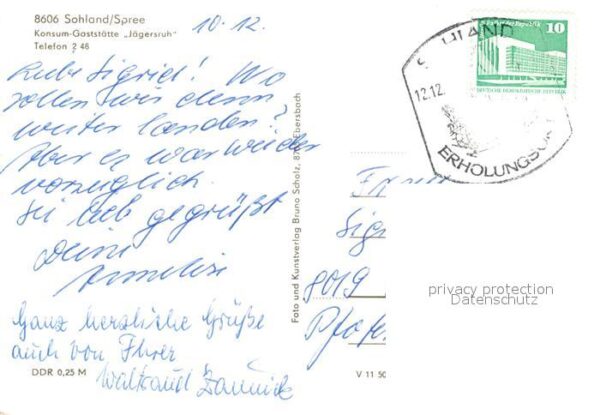 8606 Sohland/Spree
Konsum-Gaststätte „Jägersruh"
Telefon 2 48
10.12.
Liebe Sigrid! Wo
sollen wir denn
weiter landen?
Aber es war wieder
vorzüglich.
Sei lieb gegrüßt
Deine
Annelise
Ganz herzliche Grüße
auch von Ihrer
Waltraud
DDR 0,25 M
Foto und Kunstverlag Bruno Scholz, 8705 Ebersbach
V 11 50
SOHLAND
12.12.
ERHOLUNGSORT
Palast der Republik
10
DEUTSCHE DEMOKRATISCHE REPUBLIK
Frau
Sig
8019
privacy protection
Datenschutz